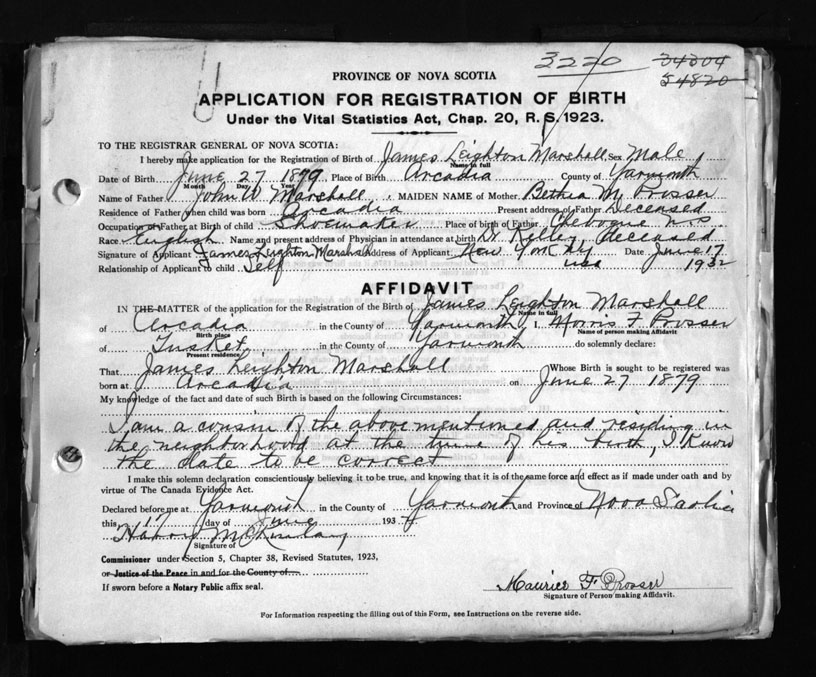 3220 34304
54820
PROVINCE OF NOVA SCOTIA
APPLICATION FOR REGISTRATION OF BIRTH
Under the Vital Statistics Act, Chap. 20, R. S. 1923.
TO THE REGISTRAR GENERAL OF NOVA SCOTIA:
I hereby make application for the Registration of Birth of James Leighton Marshall Sex Male
Name in full
Date of Birth June 27 1879 Place of Birth Arcadia County of Yarmouth
Month Day Year
Name of Father John W Marshall, MAIDEN NAME of Mother Bethia M Prosser
Residence of Father when child was born Arcadia Present address of Father Deceased
Occupation of Father at Birth of child Shoemaker Place of birth of Father Chebogue N.S.
Race English Name and present address of Physician in attendance at birth Dr Kelley, deceased
Signature of Applicant James Leighton Marshall Address of Applicant New York NY Date June 17
Relationship of Applicant to child Self USA 1932
AFFIDAVIT
IN THE MATTER of the application for the Registration of the Birth of James Leighton Marshall
Name in full
of Arcadia in the County of Yarmouth, I, Morris F Prosser
Birth place Name of person making Affidavit
of Tusket in the County of Yarmouth do solemnly declare:
Present residence
That James Leighton Marshall Whose Birth is sought to be registered was
born at Arcadia on June 27 1879
My knowledge of the fact and date of such Birth is based on the following Circumstances:
I am a cousin of the above mentioned and residing in
the neighborhood at the time of his birth, I know
the date to be correct
I make this solemn declaration conscientiously believing it to be true, and knowing that it is of the same force and effect as if made under oath and by
virtue of The Canada Evidence Act.
Declared before me at Yarmouth in the County of Yarmouth and Province of Nova Scotia
this 17 day of June 193
Harry McKinlay
Signature of
Commissioner under Section 5, Chapter 38, Revised Statutes, 1923,
or Justice of the Peace in and for the County of
If sworn before a Notary Public affix seal.
Maurice F Prosser
Signature of Person making Affidavit.
For Information respecting the filling out of this Form, see Instructions on the reverse side.